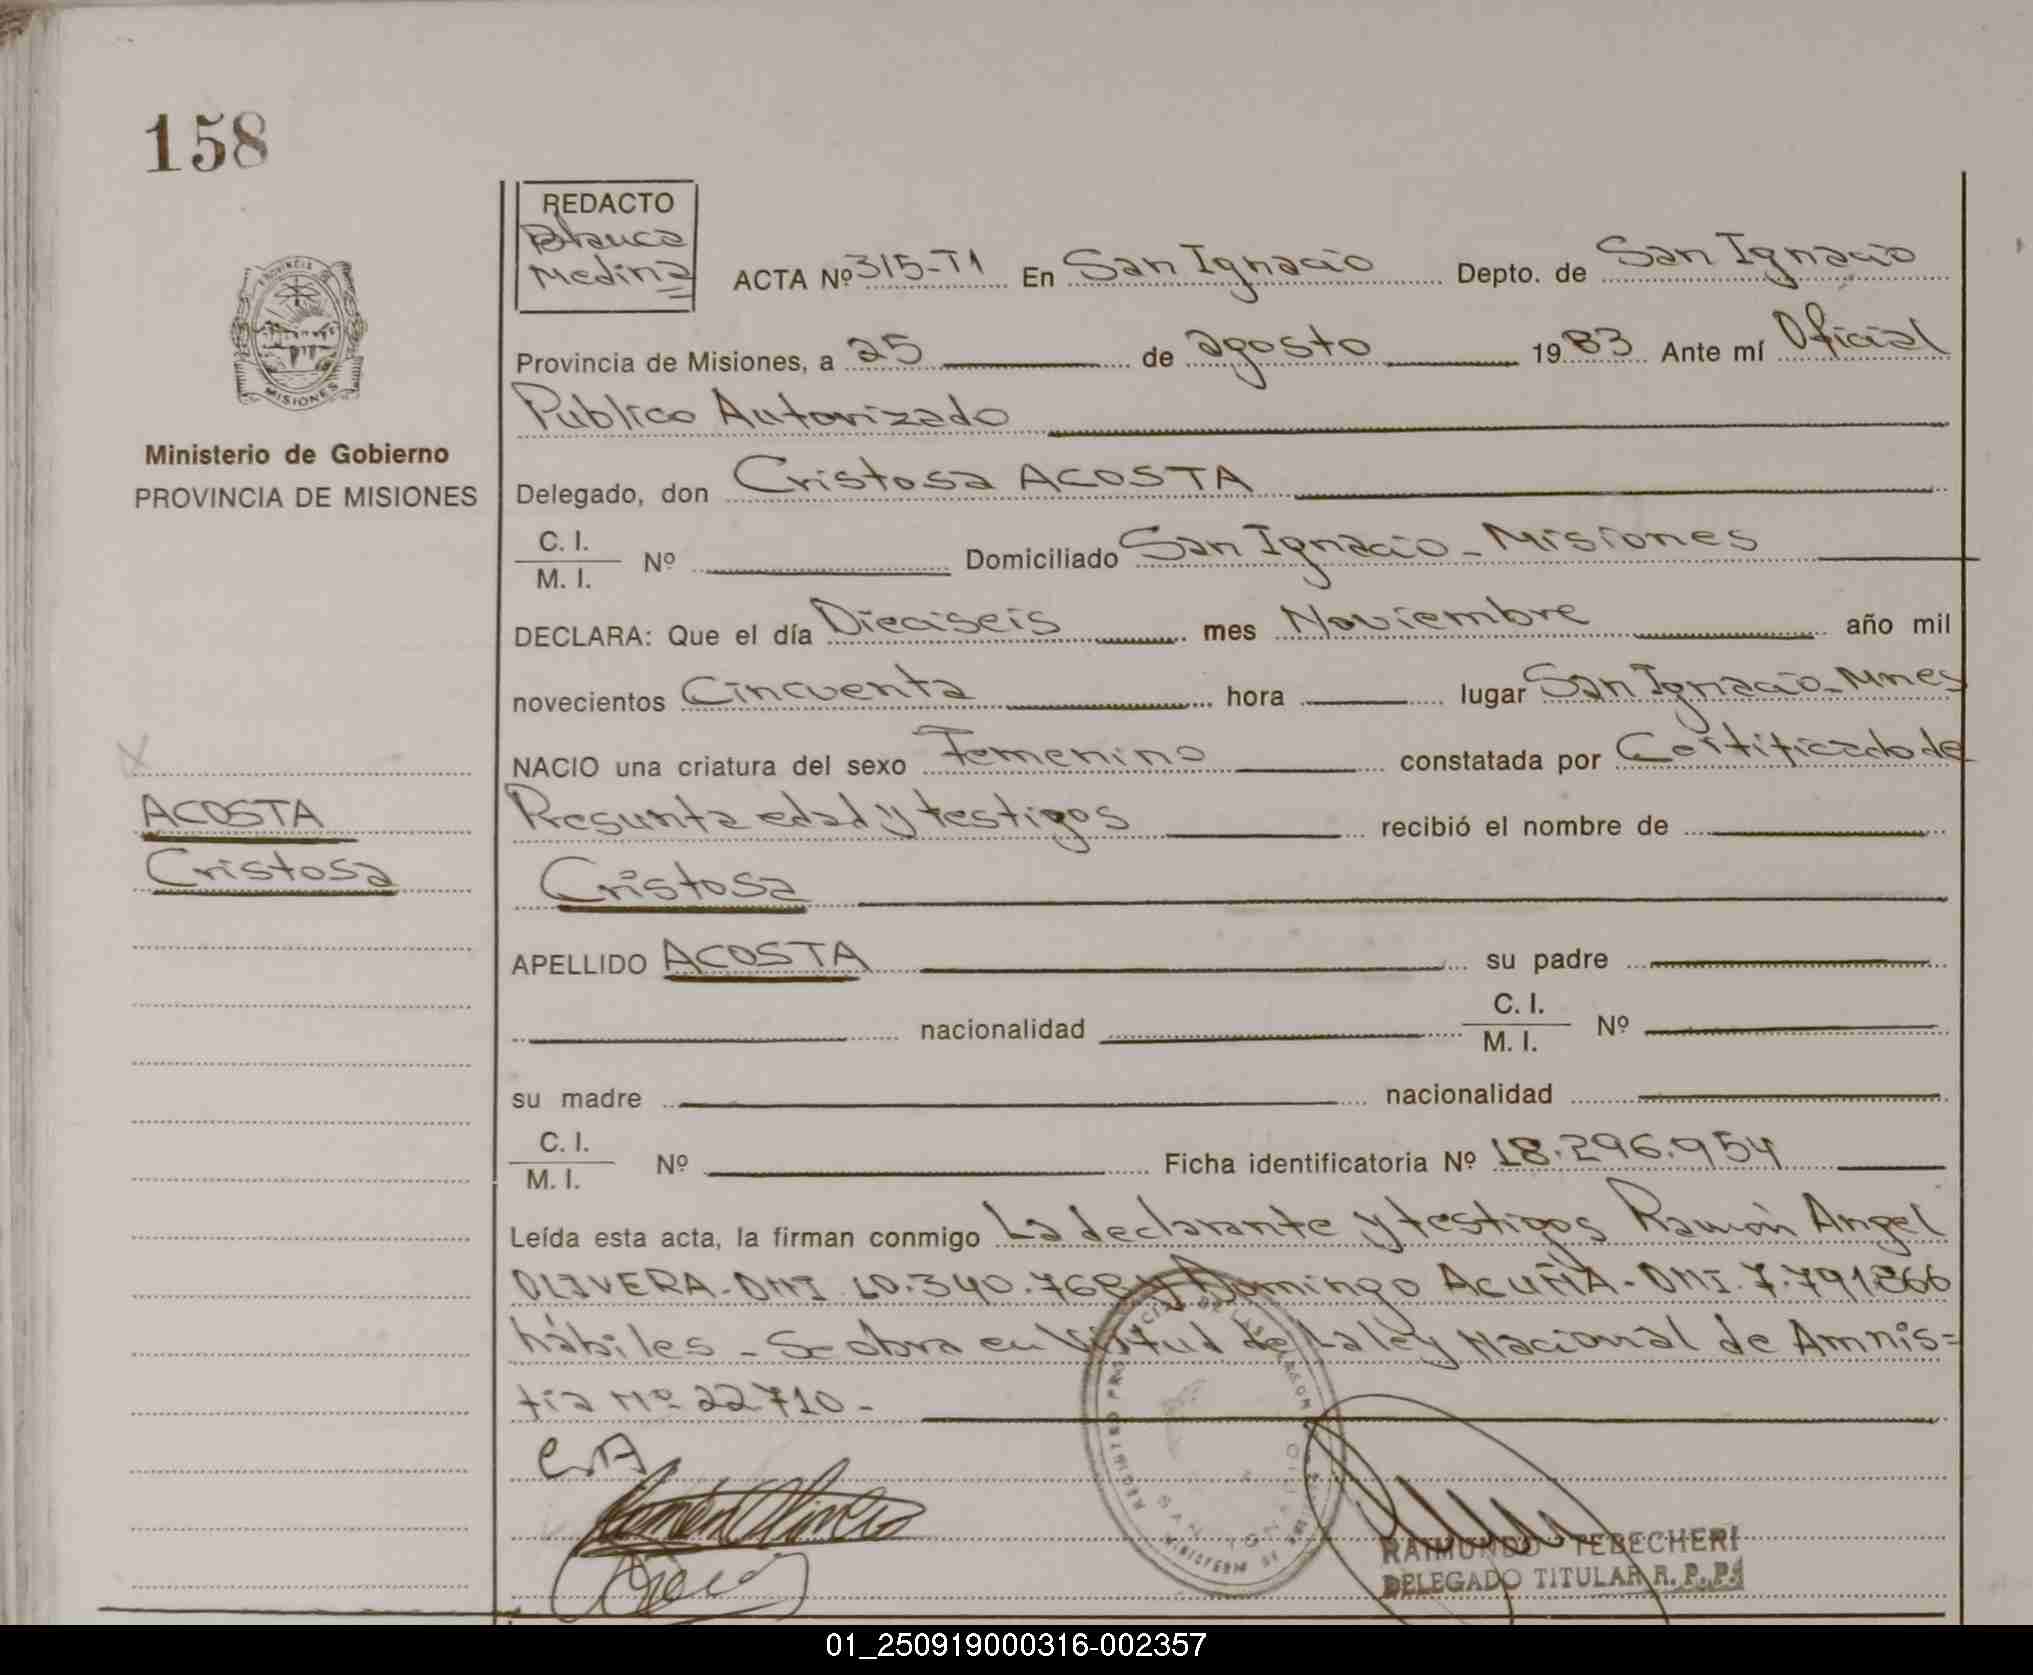 158
REDACTO
Blanca
Medina
ACTA Nº 315-T1 En San Ignacio Depto. de San Ignacio
Provincia de Misiones, a 25 de agosto 1983 Ante mí Oficial
Publico Autorizado
PROVINCIA
MISIONES
Ministerio de Gobierno
PROVINCIA DE MISIONES
Delegado, don Cristosa ACOSTA
C. I.
M. I. Nº Domiciliado San Ignacio - Misiones
DECLARA: Que el día Dieciseis mes Noviembre año mil
novecientos Cincuenta hora lugar San Ignacio - Mnes
NACIO una criatura del sexo Femenino constatada por Certificado de
Presunta edad y testigos recibió el nombre de
ACOSTA
Cristosa
Cristosa
APELLIDO ACOSTA su padre
nacionalidad C. I.
M. I. Nº
su madre nacionalidad
C. I.
M. I. Nº Ficha identificatoria Nº 18.296.954
Leída esta acta, la firman conmigo La declarante y testigos Ramón Angel
OLIVERA - DNI 10.340.768 y Domingo ACUÑA - DNI. 7.791866
hábiles - Se obra en Virtud de La ley Nacional de Amnis=
tia Nº 22.710 -
CA
Ramón Olivera
SAN IGNACIO
RAIMUNDO TEBECHERI
DELEGADO TITULAR R. P. P.
01_250919000316-002357